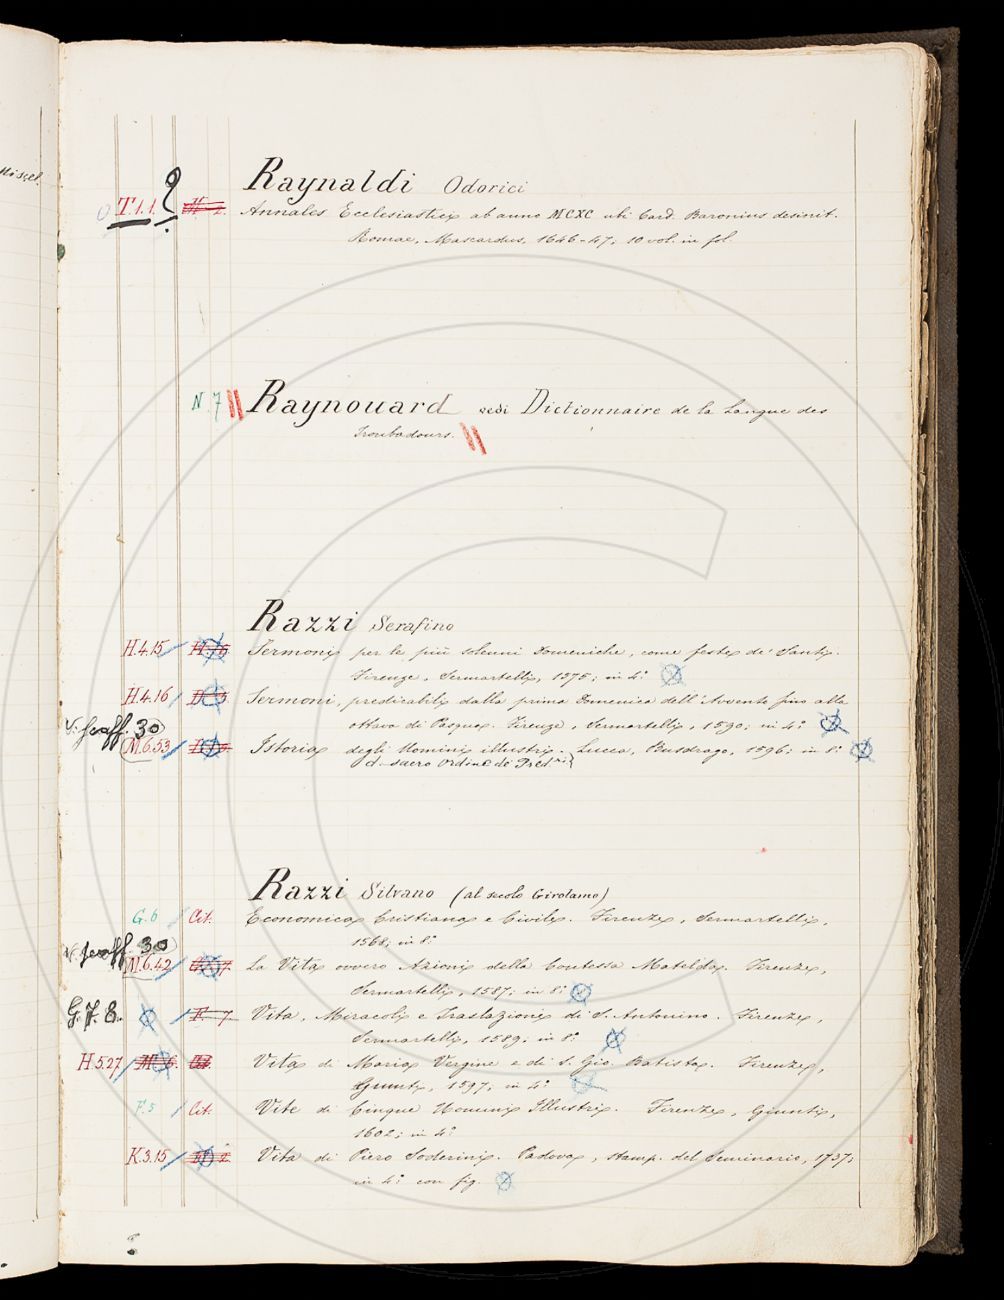 Miscel.
Raynaldi Odorici
T.1.1. ?
Annales Ecclesiastici ab anno MCXC ubi Card. Baronius desinit.
Romae, Mascardus, 1646-47; 10 vol. in fol.
N. 7 Raynouard vedi Dictionnaire de la Langue des
Troubadours.
Razzi Serafino
H.4.15 Sermoni per le più solenni Domeniche, come feste de' Santi.
Firenze, Sermartelli, 1575; in 4°
H.4.16 Sermoni, predicabili dalla prima Domenica dell'Avvento fino alla
ottava di Pasqua. Firenze, Sermartelli, 1590; in 4°
V. Scaff. 30
M.6.53 Istoria degli Uomini illustri. Lucca, Busdrago, 1596; in 8°
d. sacro ordine de' Pred.ri
Razzi Silvano (al secolo Girolamo)
G.6 Cit. Economica Cristiana e Civile. Firenze, Sermartelli,
1568; in 8°
V. Scaff. 30
M.6.42 La Vita ovvero Azioni della Contessa Matelda. Firenze,
Sermartelli, 1587; in 8°
G.7.8. F. 7 Vita, Miracoli e Traslazione di S. Antonino. Firenze,
Sermartelli, 1589; in 8°
H.5.27 Vita di Maria Vergine e di S. Gio. Batista. Firenze,
Giunti, 1597; in 4°
F.5 Cit. Vite di Cinque Uomini Illustri. Firenze, Giunti,
1602; in 4°
K.3.15 Vita di Piero Soderini. Padova, stamp. del Seminario, 1737;
in 4° con fig.